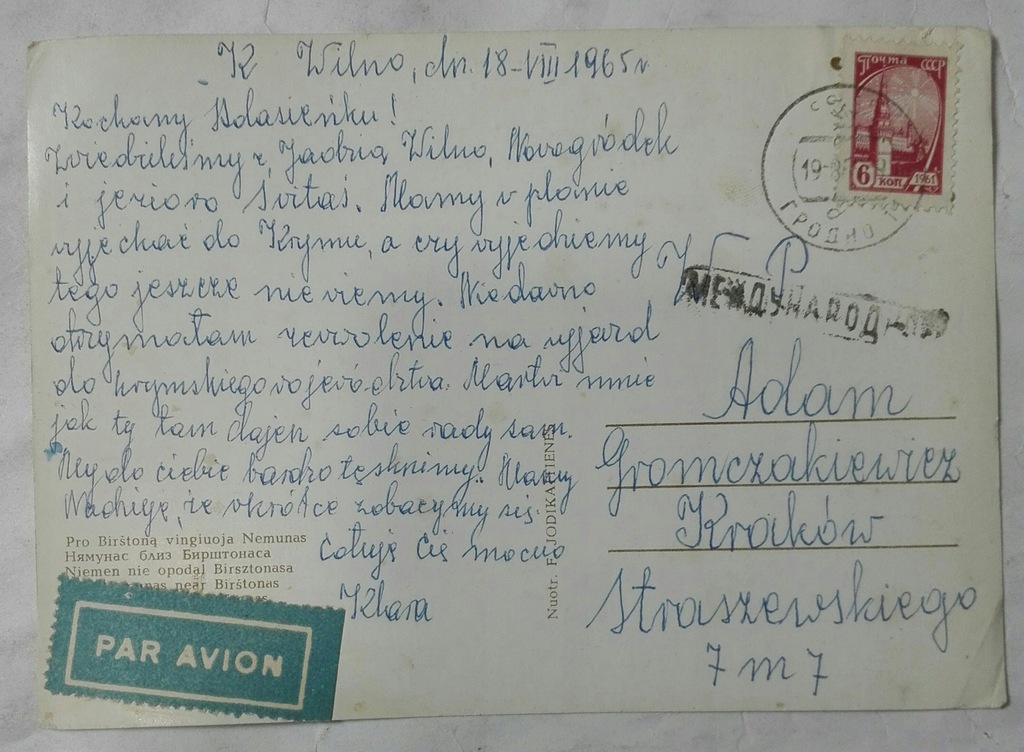 K Wilno, dn. 18-VIII 1965 r
Kochany Adasieńku!
Zwiedziliśmy z Jadzią Wilno, Nowogródek
i jezioro Świtaś. Mamy w planie
wyjechać do Krymu, a czy wyjedziemy
tego jeszcze nie wiemy. Niedawno
otrzymałam zezwolenie na wyjazd
do krymskiego województwa. Martwi mnie
jak ty tam dajesz sobie rady sam.
My do ciebie bardzo tęsknimy. Mamy
Nadzieję, że wkrótce zobaczymy się.
Całuję Cię mocno
Klara
Pro Birštoną vingiuoja Nemunas
Нямунас близ Бирштонаса
Niemen nie opodal Birsztonasa
near Birštonas
PAR AVION
Nuotr. F.
Почта СССР
6 коп
1961
19-8
ГРОДНО
W P
МЕЖДУНАРОДНОЕ
Adam
Gromczakiewicz
Kraków
Straszewskiego
7 m 7